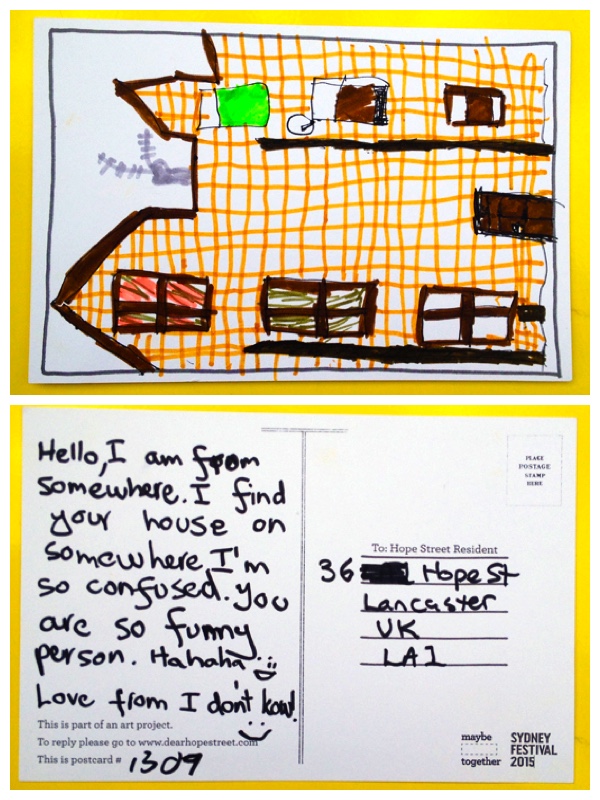 Hello, I am from
somewhere. I find
your house on
somewhere, I'm
so confused. you
are so funny
person. Hahaha
Love from I don't kow!
This is part of an art project.
To reply please go to www.dearhopestreet.com
This is postcard # 1309
PLACE
POSTAGE
STAMP
HERE
To: Hope Street Resident
36 Hope St
Lancaster
UK
LA1
maybe
together
SYDNEY
FESTIVAL
2015